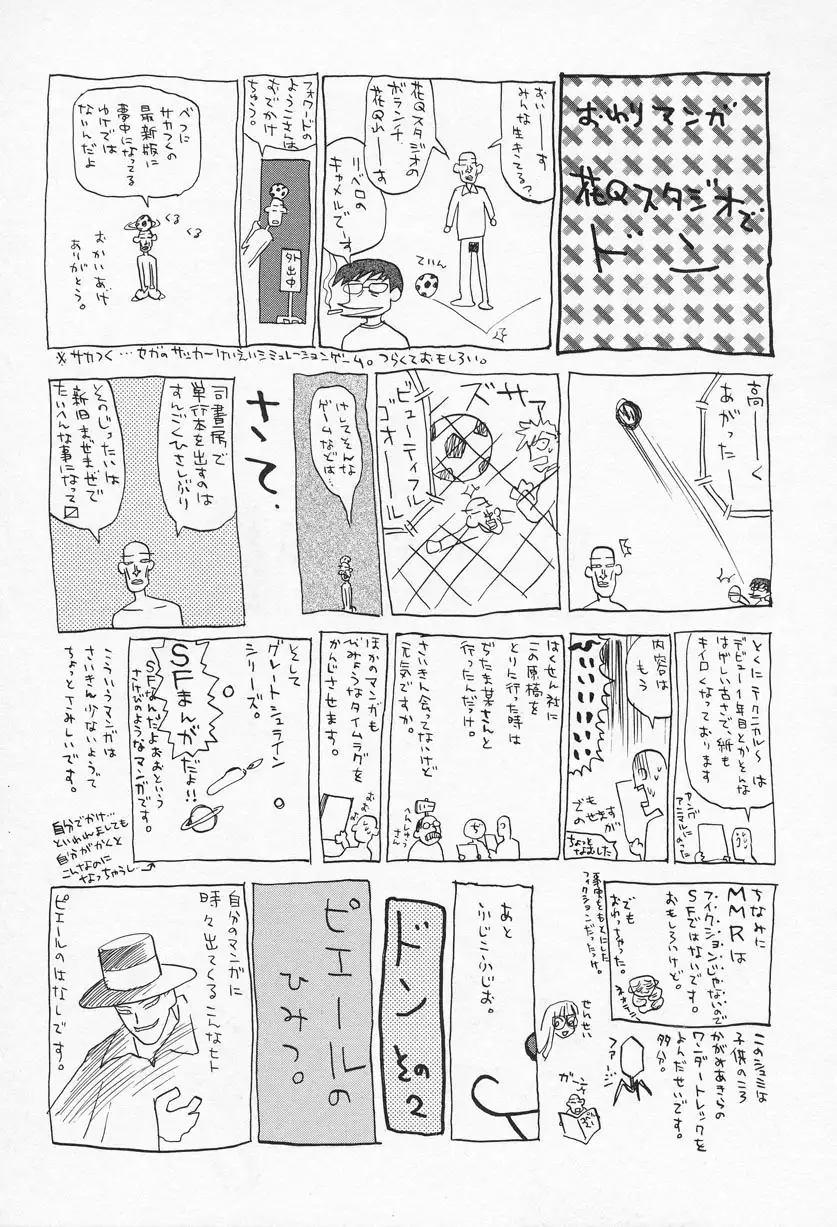 おわりマンガ
花Qスタジオで
ドン
おぃーーす
みんな生きてる?
花Qスタジオの
ボランチ、
花Q山ーす
リベロの
キャメルです
てぃん
フォワードの
ようこさんは
おでかけ
ちゅう。
外出中
べつに
サカつくの
最新版に
夢中になってる
ゆけでは
ないんだよ
くる
くる
おかいあげ
ありがとう。
※サカつく…セガのサッカーけいえいシミュレーションゲーム。つらくておもしろい。
高ーーく
あがったーー
ズサァ
ビューティフル
ゴオーール
けしてそんな
ゲームなどは…
さて、
司書房で
単行本を出すのは
すんごくひさしぶり
そのじったいは
新旧まぜまぜで
たいへんな事になって
とくにテクニカル〜は
デビュー1年目とかそんな
はげしい古さで、紙も
キイロくなっております
ヤング
アニマルにのった
内容は
もう
でも
のせますが
ちょっと
なおしました
はくせん社に
この原稿を
とりに行った時は
ぢたま某さんと
行ったんだっけ。
さいきん会ってないけど
元気ですか。
へんしゅう
さん
ぢ
ほかのマンガも
びみょうなタイムラグを
かんじさせます。
おお
そして
グレートシュライン
シリーズ。
SFまんがだよ!!
SFなんだよおおという
さけびのようなマンガです。
こういうマンガは
さいきん少ないようで
ちょっとさみしいです。
自分でかけ…
といわれん気しても
自分がかくと
こんなのに
なっちゃうし…
ちなみに
MMRは
フィクションじゃないので
SFではないです。
おもしろいけど。
でも
おわっちゃった。
このシュミは
子供のころ
かがみあきらの
ワンデートレックを
よんだせいです。
多分。
ファージ
ガーン
せんせい
あと
ふじこふじお。
ドン その2
ピエールの
ひみつ。
自分のマンガに
時々出てくるこんなヒト
ピエールのはなしです。